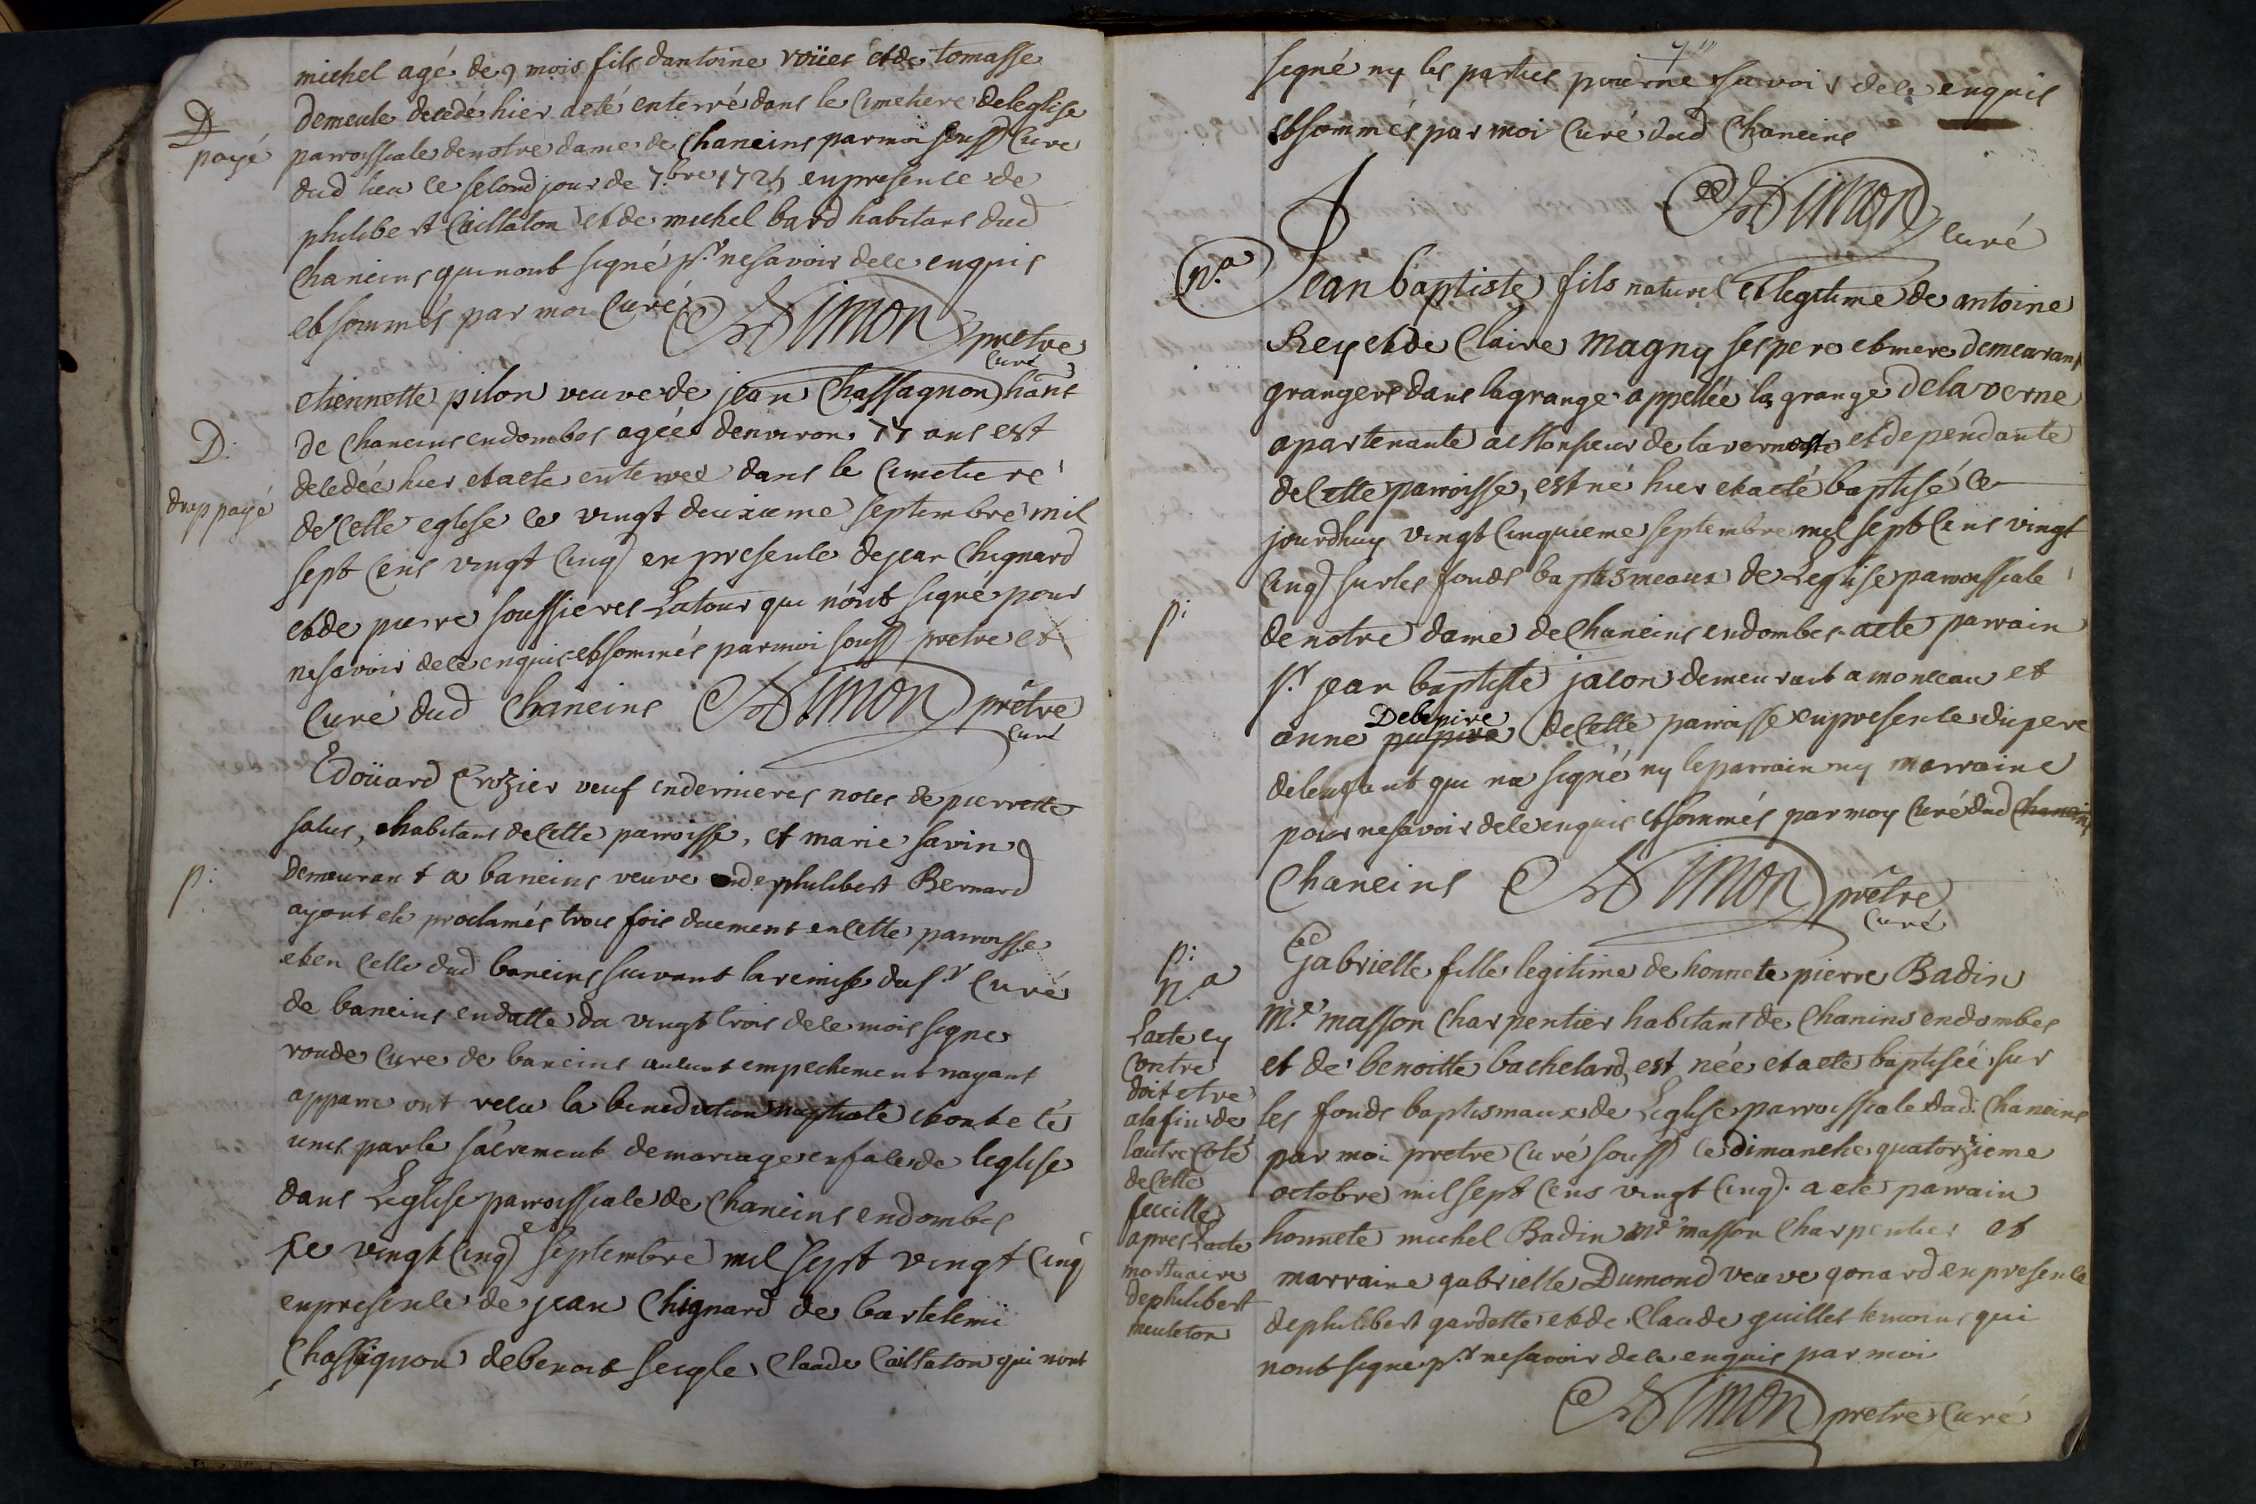 michel agé de 9 mois fils dantoine roües et de tomasse
Demeule decedé hier a eté enterré dans le cimetiere de leglise
D
payé
parroissiale de notre dame de Chaneins par moi souss curé
dud lieu le second jour de 7.bre 1725 en presence de
philibert Caillaton et de michel bard habitans dud
Chaneins qui nont signé p.r ne savoir de ce enquis
et sommés par moi Curé Simon prêtre
curé
etiennette pilon veuve de jean Chassagnon) hant
D:
de Chaneins en dombes agée denviron ans est
decedée hier et a ete enterree dans le cimetiere
drap payé
de cette eglise ce vingt deuxieme septembre mil
sept cens vingt cinq en presence de jean Chignard
et de pierre souffieres Latour qui n'ont signé pour
ne savoir de ce enquis et sommés par moi souss pretre et
Curé dud Chaneins Simon prêtre
curé
Edoüard Crozier veuf en dernieres noces de pierrette
salus, habitans de cette parroisse, et marie savin
p:
Demeurant a baneins veuve de philibert Bernard
ayant ete proclamés trois fois duement en cette parroisse
et en celle dud baneins suivant la remise du s.r Curé
de baneins en datte du vingt trois de ce mois signe
roude cure de baneins aucun empechement nayant
apparu ont recu la benediction nuptiale et ont eté
unis par le sacrement de mariage en face de leglise
dans Leglise parroissiale de Chaneins en dombes
ce vingt cinq.e septembre mil sept vingt cinq
en presence de jean Chignard de bartelemi
Chassignon de benoit seigle Claude Caillaton qui nont
signé ny les parties pour ne savoir de ce enquis
et sommés par moi Curé dud Chaneins
Simon
curé
n.a
Jean baptiste fils naturel et legitime de antoine
Rey et de Claire Magny ses pere et mere demeurans
grangers dans la grange appellée la grange De la verne
apartenante a Monsieur de la et dependante
de cette parroisse, est né hier et a eté baptisé ce
jourdhuy vingt cinquieme septembre mil sept cens vingt
cinq sur les fonds baptismeaux de Leglise parroissiale
p:
de notre dame de Chaneins en dombes a ete parrain
s.r jean baptiste jalon demeurant a monceau et
Debenire
anne de cette parroisse en presence du pere
de lenfant qui na signé ny le parrain ny marraine
pour ne savoir de ce enquis et sommés par moy Curé dud Chaneins
Chaneins Simon prêtre
curé
p:
n.a
Gabrielle fille legitime de honnete pierre Badin
M.e masson Charpentier habitant de Chanins en dombes
et de benoitte bachelard, est née et a ete baptisée sur
les fonds baptismaux de Leglise parroissiale dud. Chaneins
par moi pretre Curé souss ce dimanche quatorzieme
octobre mil sept cens vingt cinq. a ete parrain
honnete michel Badin M.e masson Charpentier et
marraine gabrielle Dumond veuve gonard en presence
de philibert gardette et de Claude guillet temoins qui
nont signe p.r ne savoir de ce enquis par moi
Simon pretre Curé
Lacte cy
contre
doit etre
a la fin de
lautre coté
de cette
feuille
apres lacte
mortuaire
de philibert
meuleton